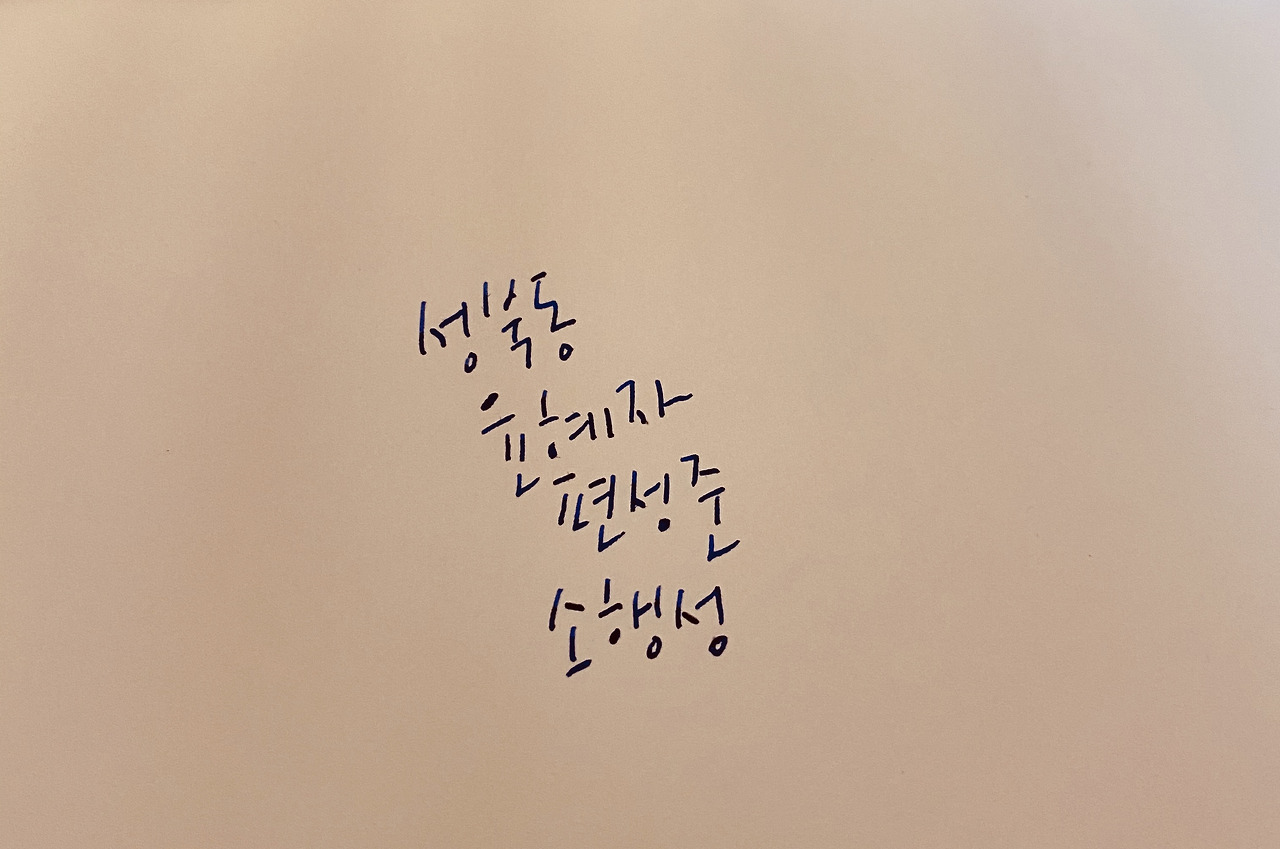 성북동
윤혜자
편성준
소행성